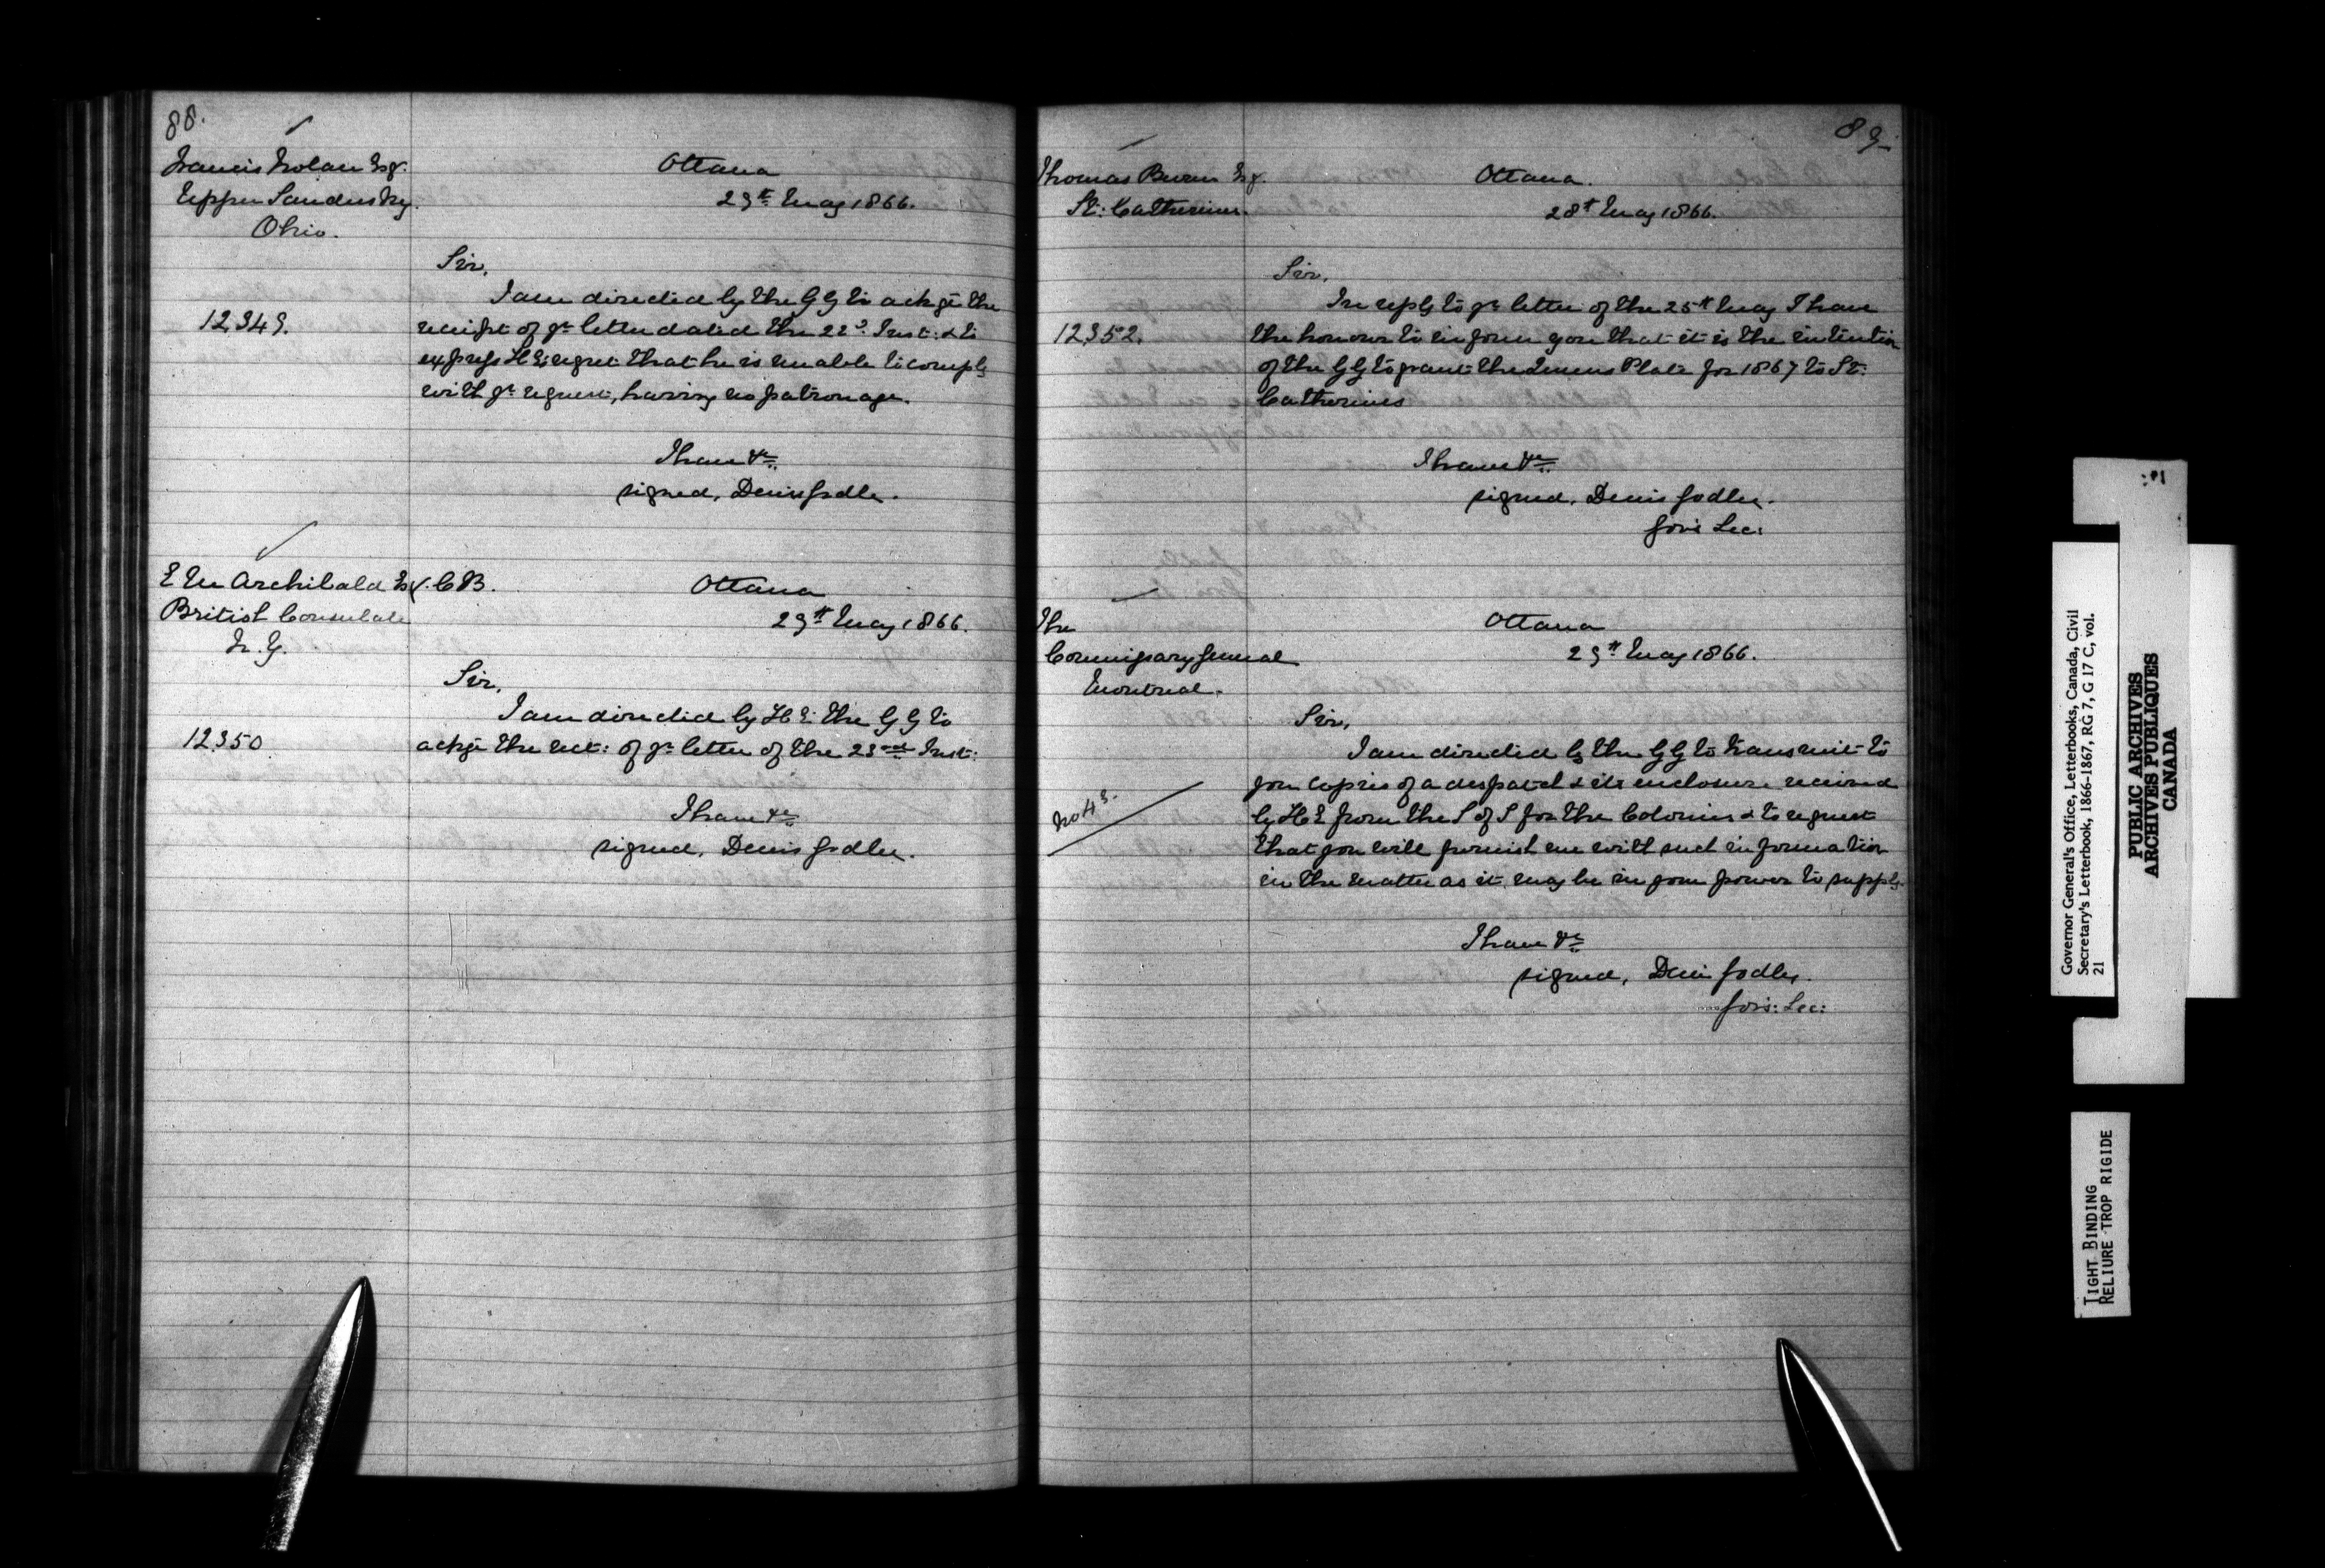 88.
Francis Nolan Esqr.
Upper Sandusky.
Ohio.
Ottawa
29th May 1866.
Sir,
I am directed by the G G to ackge the
12,349.
receipt of yr letter dated the 22d Inst: & to
express H E's regret that he is unable to comply
with yr request, having no patronage.
I have &c
signed, Denis Godley.
E M Archibald Esq. C B.
British Consulate
N. Y.
Ottawa
29th May 1866.
Sir,
I am directed by H E the G G to
12,350
ackge the rect: of yr letter of the 23rd Inst:
I have &c
signed, Denis Godley.
89.
Thomas Burns Esqr.
St: Catherines.
Ottawa.
28th May 1866.
Sir,
In reply to yr letter of the 25th May I have
12,352.
the honour to inform you that it is the intention
of the G G to grant the Queens Plate for 1867 to St:
Catherines
I have &c
signed, Denis Godley.
Gov's Sec:
The
Commissary General
Montreal.
Ottawa
29th May 1866.
Sir,
I am directed by the G G to transmit to
you copies of a despatch & its enclosure received
No 49.
by H E from the S of S for the Colonies & to request
that you will furnish me with such information
in the matter as it may be in your power to supply.
I have &c
signed, Denis Godley.
Gov's: Sec:
Governor General's Office, Letterbooks, Canada, Civil
Secretary's Letterbook, 1866-1867, RG 7, G 17 C, vol.
21
PUBLIC ARCHIVES
ARCHIVES PUBLIQUES
CANADA
TIGHT BINDING
RELIURE TROP RIGIDE